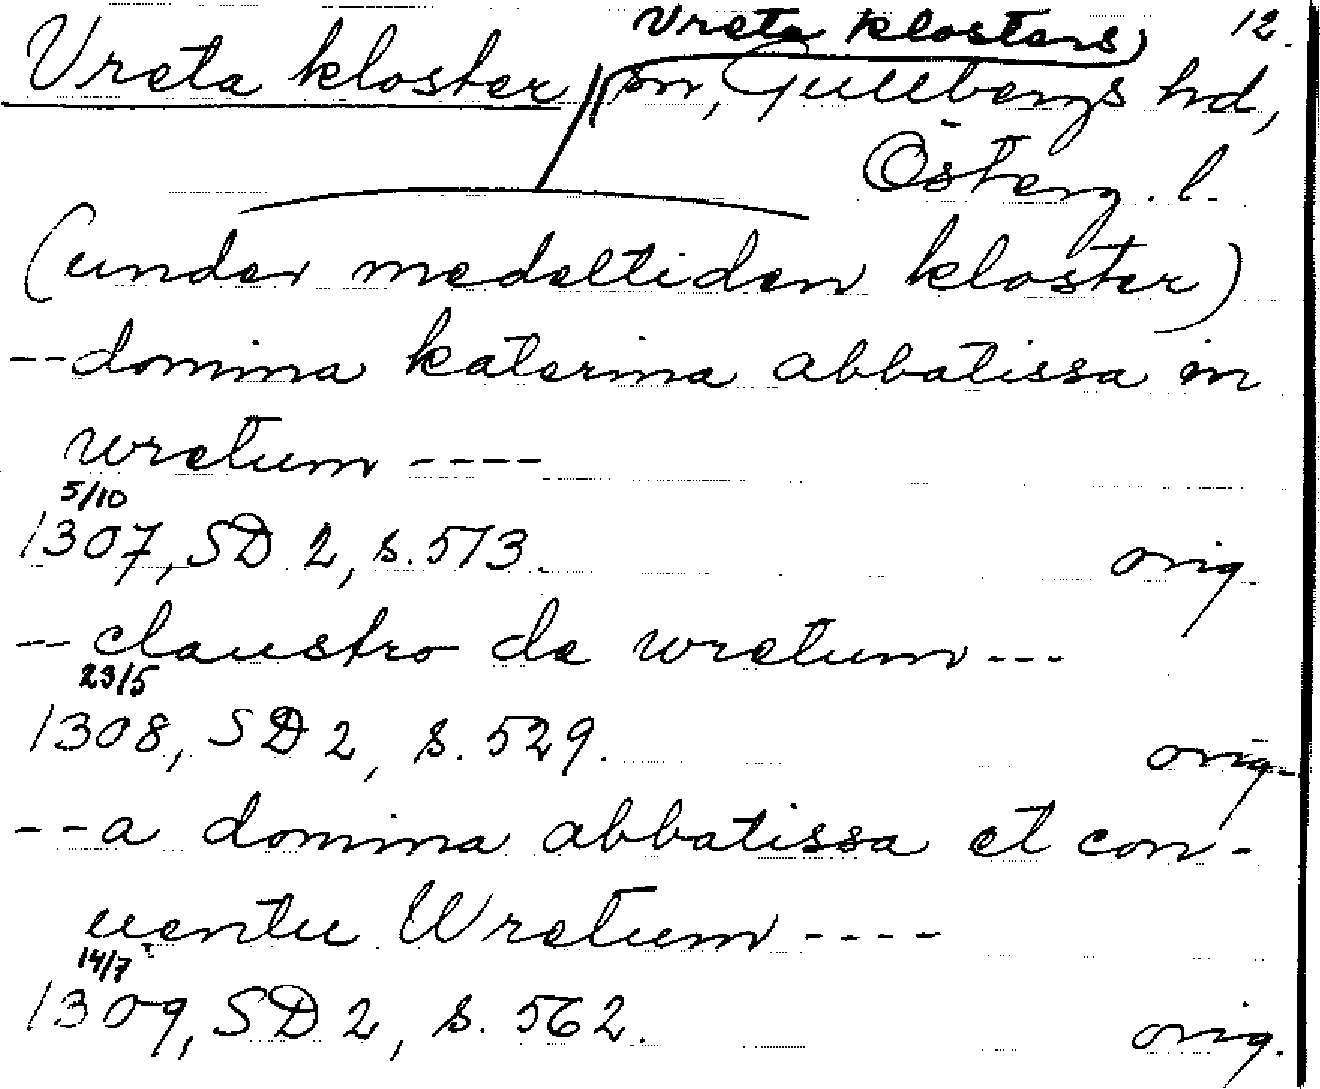 Vreta klosters 12.
Vreta kloster sn, Gullbergs hd,
Österg. l.
(under medeltiden kloster)
--domina katerina abbatissa in
wretum ----
5/10
1307, SD 2, s. 513. orig.
-- claustro de wretum ---
23/5
1308, SD 2, s. 529. orig.
--a domina abbatissa et con-
uentu Wretum ----
14/7
1309, SD 2, s. 562. orig.